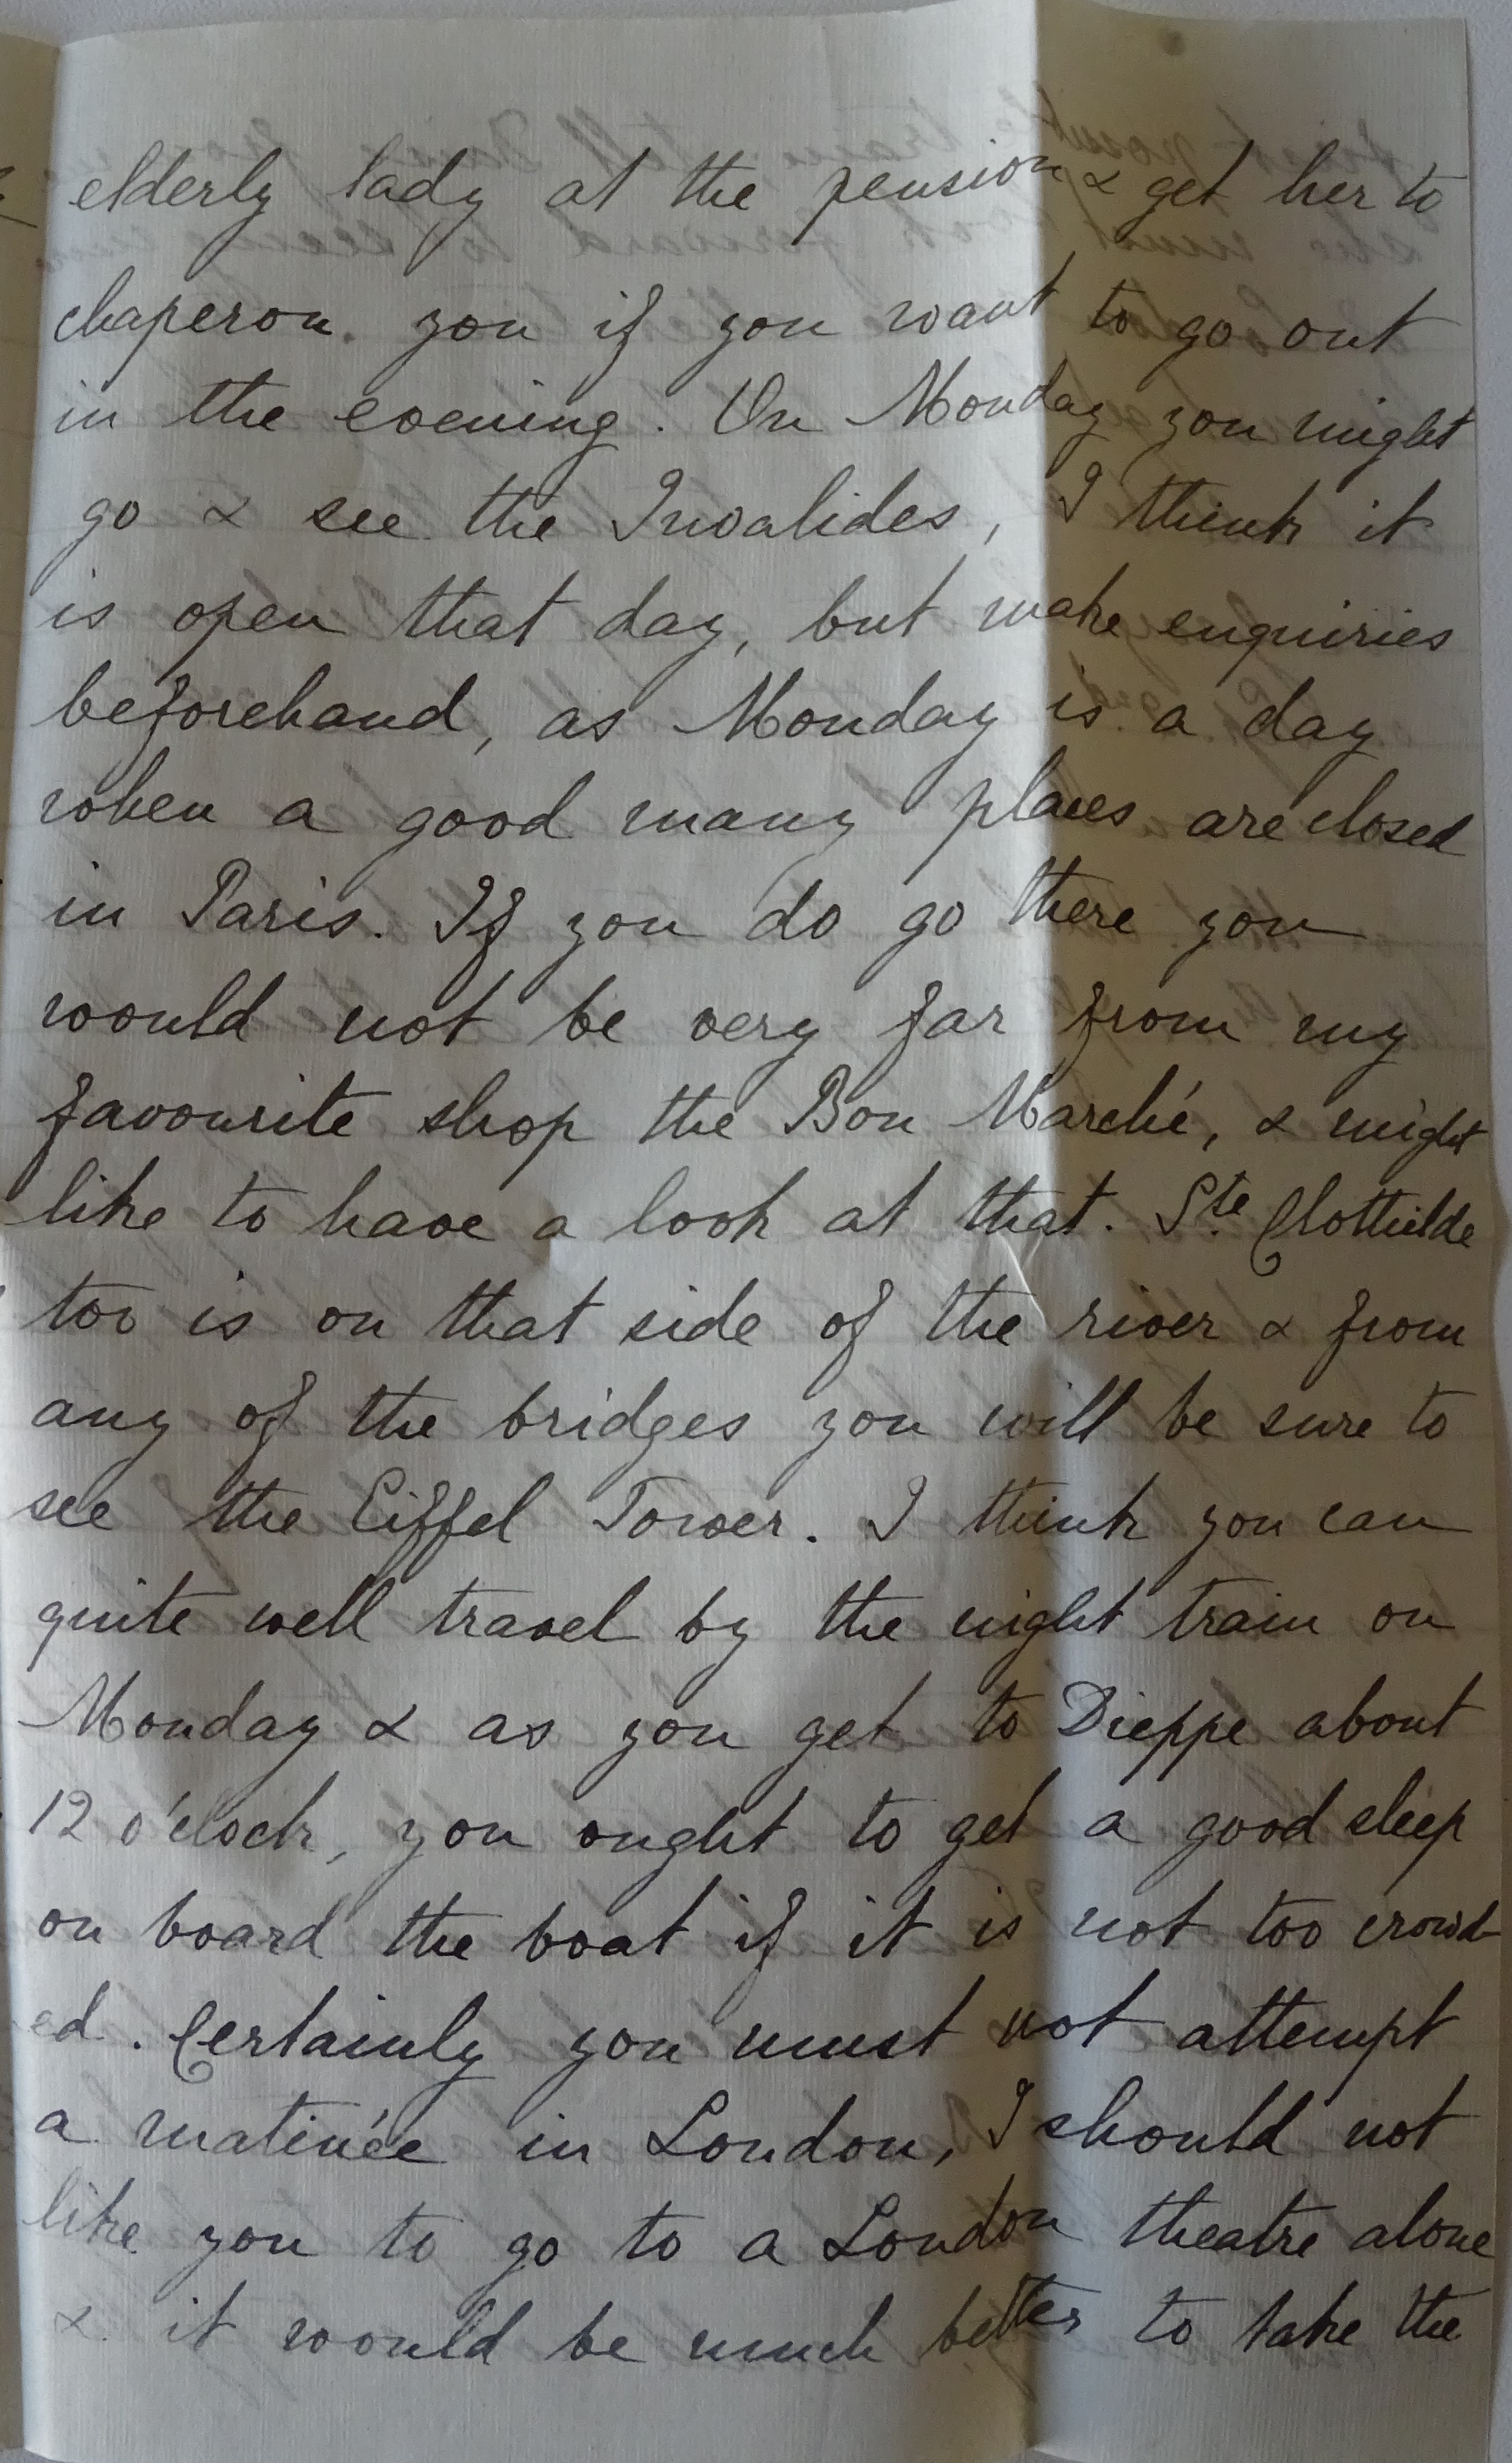 elderly lady at the pension & get her to
chaperon you if you want to go out
in the evening. On Monday you might
go & see the Invalides, I think it
is open that day, but make enquiries
beforehand, as Monday is a day
when a good many places are closed
in Paris. If you do go there you
would not be very far from my
favourite shop the Bon Marché, & might
like to have a look at that. Ste. Clothilde
too is on that side of the river & from
any of the bridges you will be sure to
see the Eiffel Tower. I think you can
quite well travel by the night train on
Monday & as you get to Dieppe about
12 o'clock, you ought to get a good sleep
on board the boat if it is not too crowd-
ed. Certainly you must not attempt
a matinée in London, I should not
like you to go to a London theatre alone
& it would be much better to take the